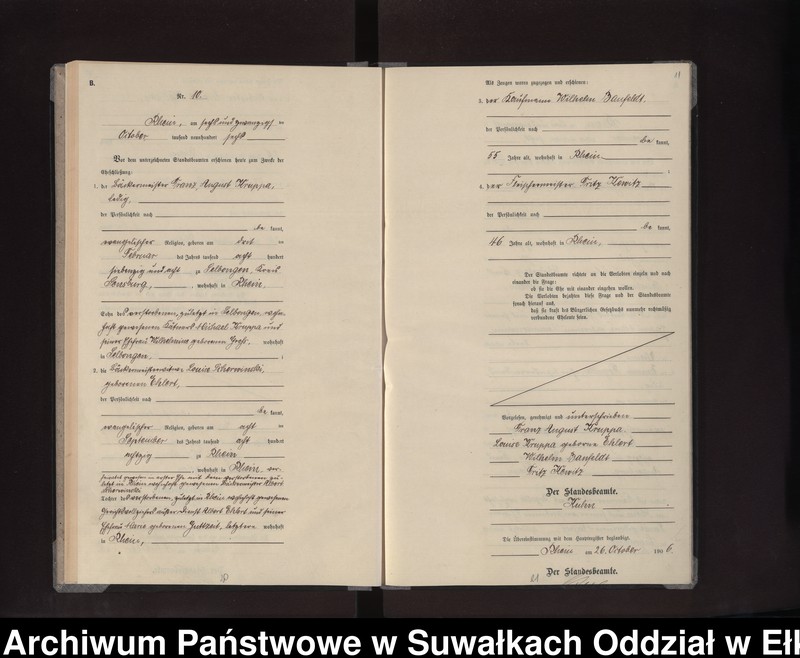 B.
Nr. 10.
Rhein, am sechs und zwanzigsten
October tausend neunhundert sechs
Vor dem unterzeichneten Standesbeamten erschienen heute zum Zwecke der
Eheschließung:
1. der Bäckermeister Franz August Kruppa,
ledig,
der Persönlichkeit nach
be kannt,
evangelischer Religion, geboren am
Februar des Jahres tausend acht hundert
siebenzig und acht zu Selbongen, Kreis
Sensburg, wohnhaft in Rhein,
Sohn des verstorbenen, zuletzt in Selbongen wohn-
haft gewesenen Michael Kruppa und
seiner Ehefrau Wilhelmine geborenen wohnhaft
in Selbongen,
2. die Bäckermeisterwitwe Louise
geborenen Ehlert,
der Persönlichkeit nach
be kannt,
evangelischer Religion, geboren am acht ten
September des Jahres tausend acht hundert
achtzig zu Rhein
, wohnhaft in Rhein ver-
heiratet gewesen in erster Ehe mit dem verstorbenen, zu-
letzt in Rhein wohnhaft gewesenen Bäckermeister Albert
Tochter des verstorbenen, zuletzt in Rhein wohnhaft gewesenen
Gerichtsvollzieher außer Dienst Albert Ehlert und seiner
Ehefrau geborenen Guttzeit, letztere wohnhaft
in Rhein,
11
Als Zeugen waren zugezogen und erschienen:
3. der Kaufmann Wilhelm Banfeldt,
der Persönlichkeit nach
be kannt,
55 Jahre alt, wohnhaft in Rhein
4. der Fritz Kewitz
der Persönlichkeit nach
be kannt,
46 Jahre alt, wohnhaft in Rhein,
Der Standesbeamte richtete an die Verlobten einzeln und nach
einander die Frage:
ob sie die Ehe mit einander eingehen wollen.
Die Verlobten bejahten diese Frage und der Standesbeamte
sprach hierauf aus,
daß sie kraft des Bürgerlichen Gesetzbuchs nunmehr rechtmäßig
verbundene Eheleute seien.
Vorgelesen, genehmigt und unterschrieben
Franz August Kruppa.
Louise Kruppa geborne Ehlert
Wilhelm Banfeldt
Fritz Kewitz
Der Standesbeamte.
Kuhn
Die Übereinstimmung mit dem Hauptregister beglaubigt,
Rhein am 26. October 1906.
Der Standesbeamte.
Archiwum Państwowe w Suwałkach Oddział w Ełk